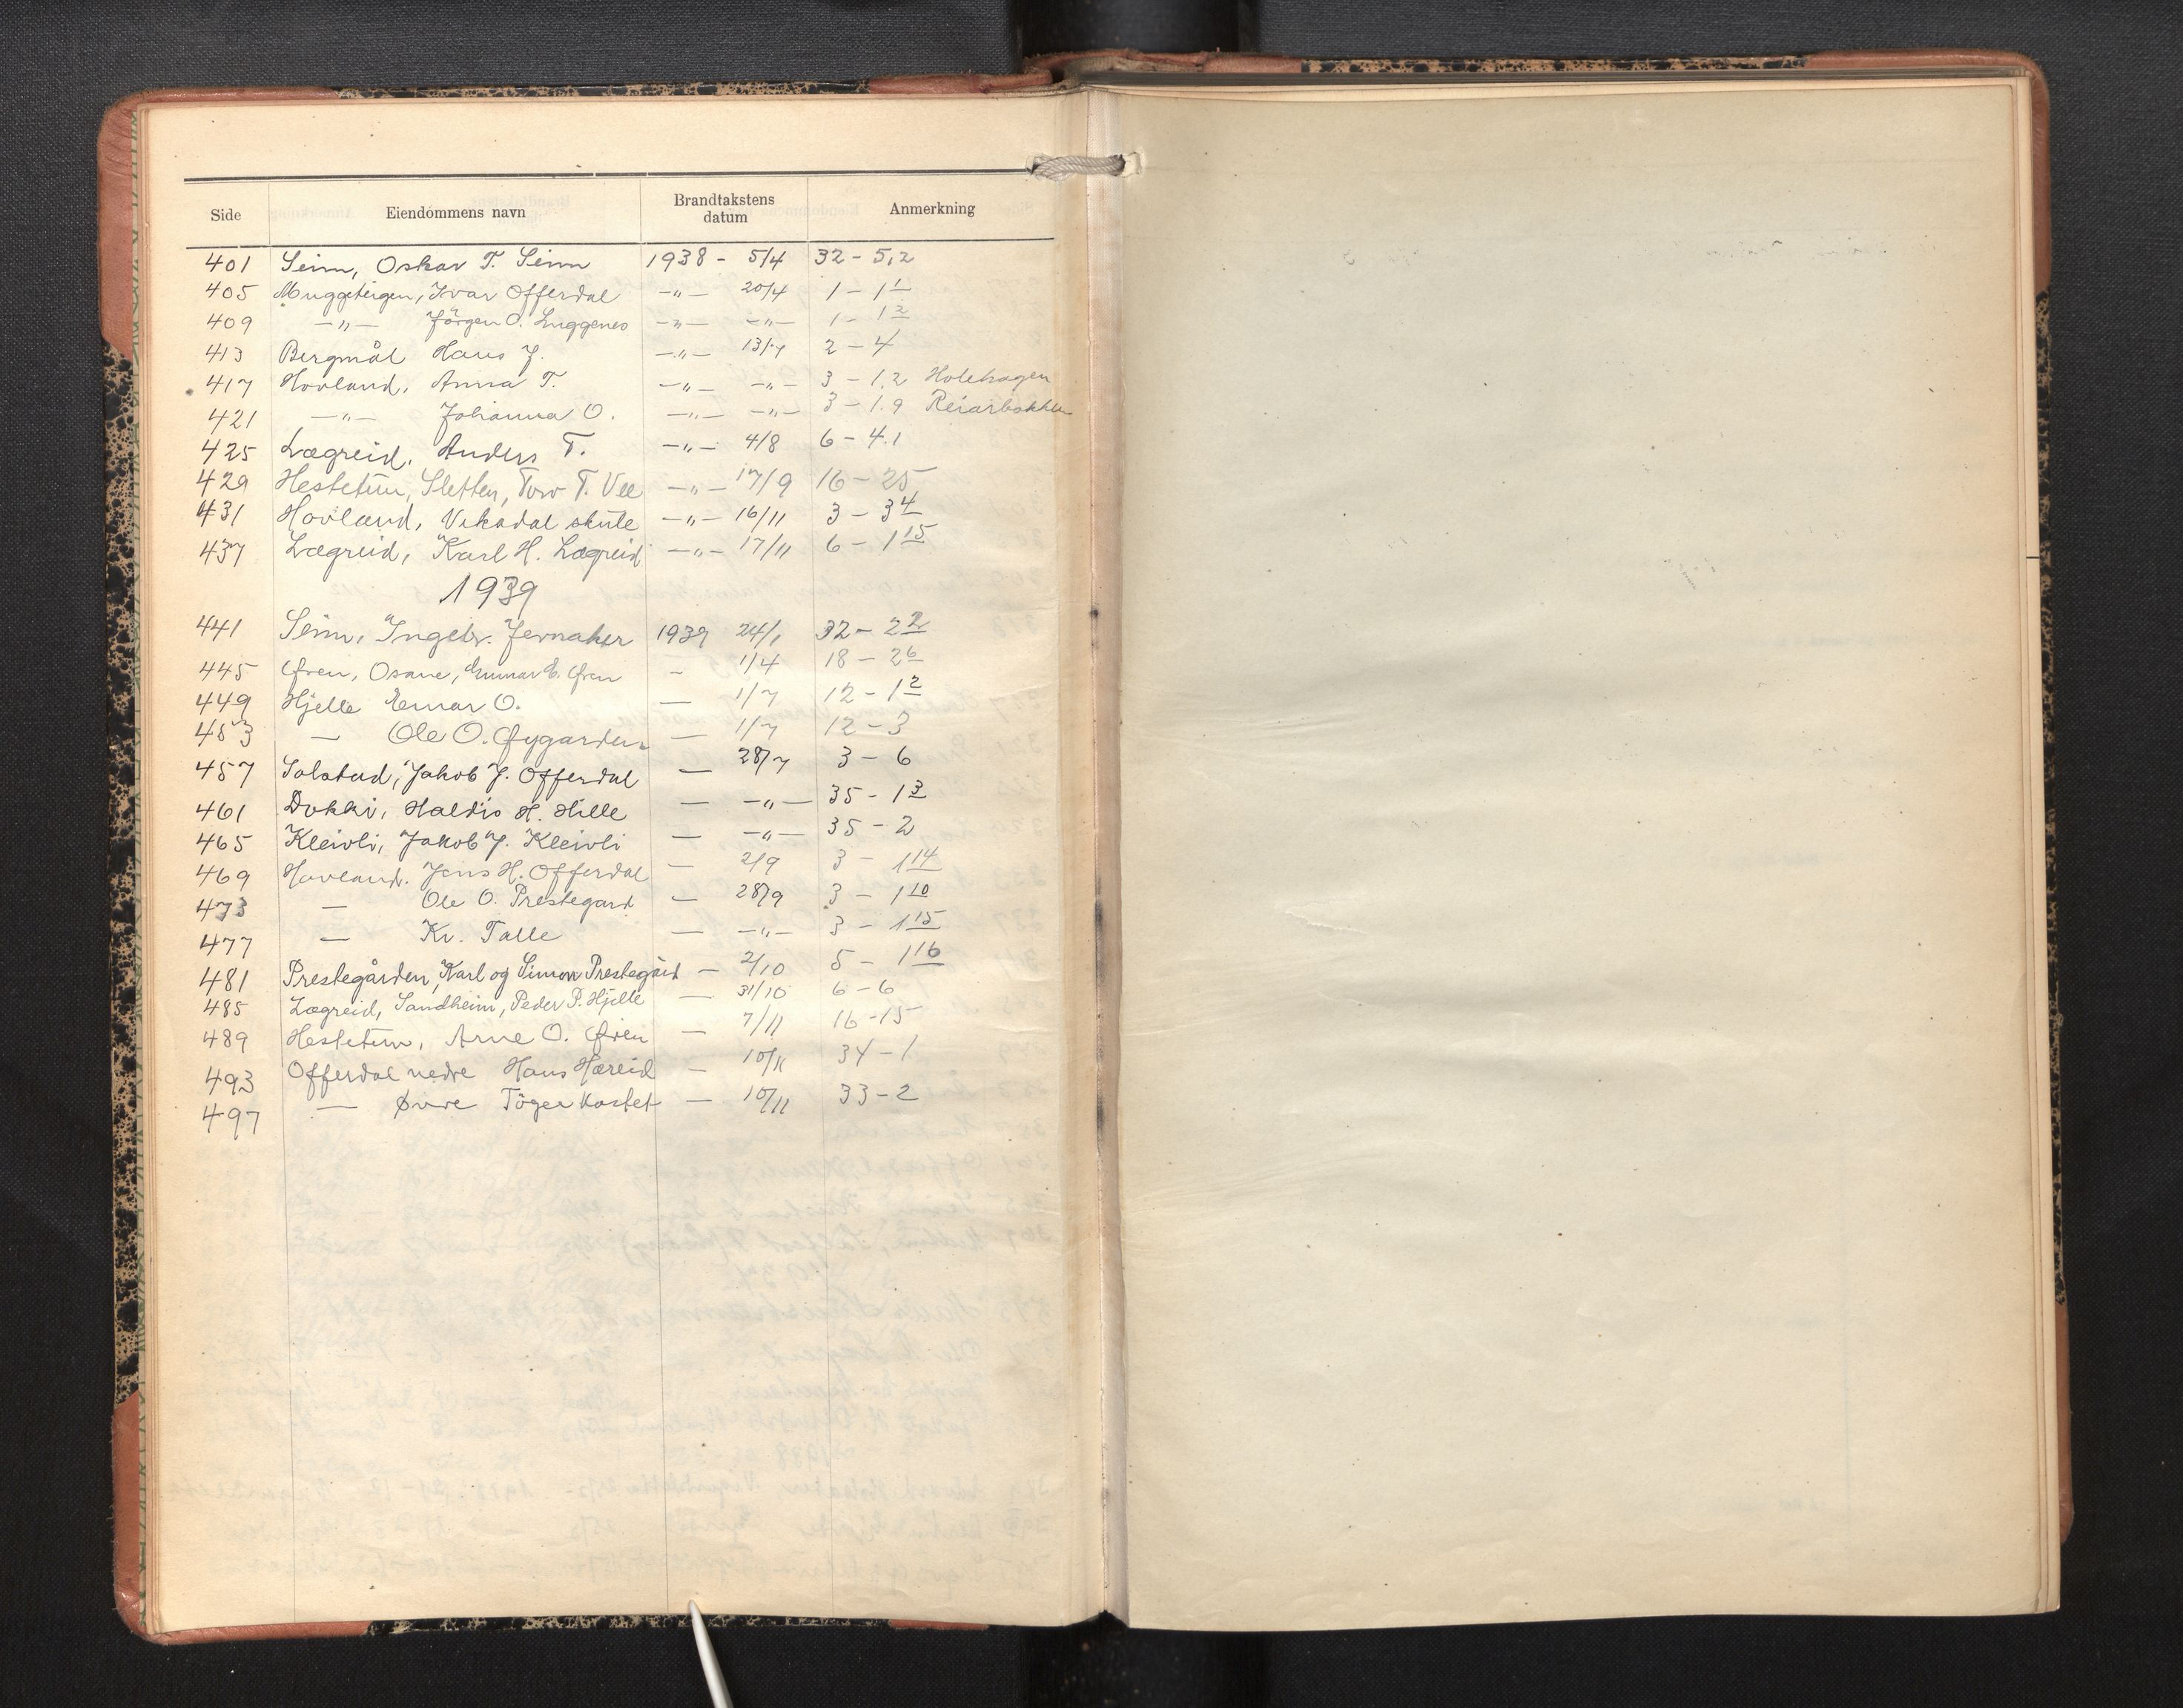 Side Eiendommens navn Brandtakstens datum Anmerkning
401 Seim, Oskar T. Seim 1938 - 5/4 32 - 5,2
405 Muggeteigen, Ivar Offerdal -"- 20/4 1 - 1 1
409 -"- Jörgen O. Luggenes -"- -"- 1 - 1 2
413 Bergmål Hans J. -"- 13/7 2 - 4
417 Hovland, Anna T. -"- -"- 3 - 1.2 Holehagen
421 -"- Johanna O. -"- -"- 3 - 1.9 Reiarbakken
425 Lægreid, Anders T. -"- 4/8 6 - 4.1
429 Hestetun, Sletten, Tor T. Vee -"- 17/9 16 - 25
431 Hovland, Vikadal skule -"- 16/11 3 - 3 4
437 Lægreid, Karl H. Lægreid -"- 17/11 6 - 1 15
1939
441 Seim, Ingebr. Jernaker 1939 24/1 32 - 2 2
445 Øren, Osane, Gunnar E. Øren - 1/4 18 - 2 6
449 Hjelle Einar O. — 1/7 12 - 1 2
453 — Ole O. Øygarden — 1/7 12 - 3
457 Solstad, Jakob J. Offerdal — 28/7 3 - 6
461 Dokki, Haldis H. Hille — -"- 35 - 1 3
465 Kleivli, Jakob J. Kleivli — -"- 35 - 2
469 Hovland. Jens H. Offerdal — 2/9 3 - 1 14
473 — Ole O. Prestegard — 28/9 3 - 1 10
477 — Kr. Talle — -"- 3 - 1 15
481 Prestegården, Karl og Simon Prestegård — 2/10 5 - 1 16
485 Lægreid, Sandheim, Peder P. Hjelle — 31/10 6 - 6
489 Hestetun, Arne O. Øren — 7/11 16 - 15
493 Offerdal nedre Hans Hæreid — 10/11 34 - 1
497 — Øvre Töger Kostet — 10/11 33 - 2